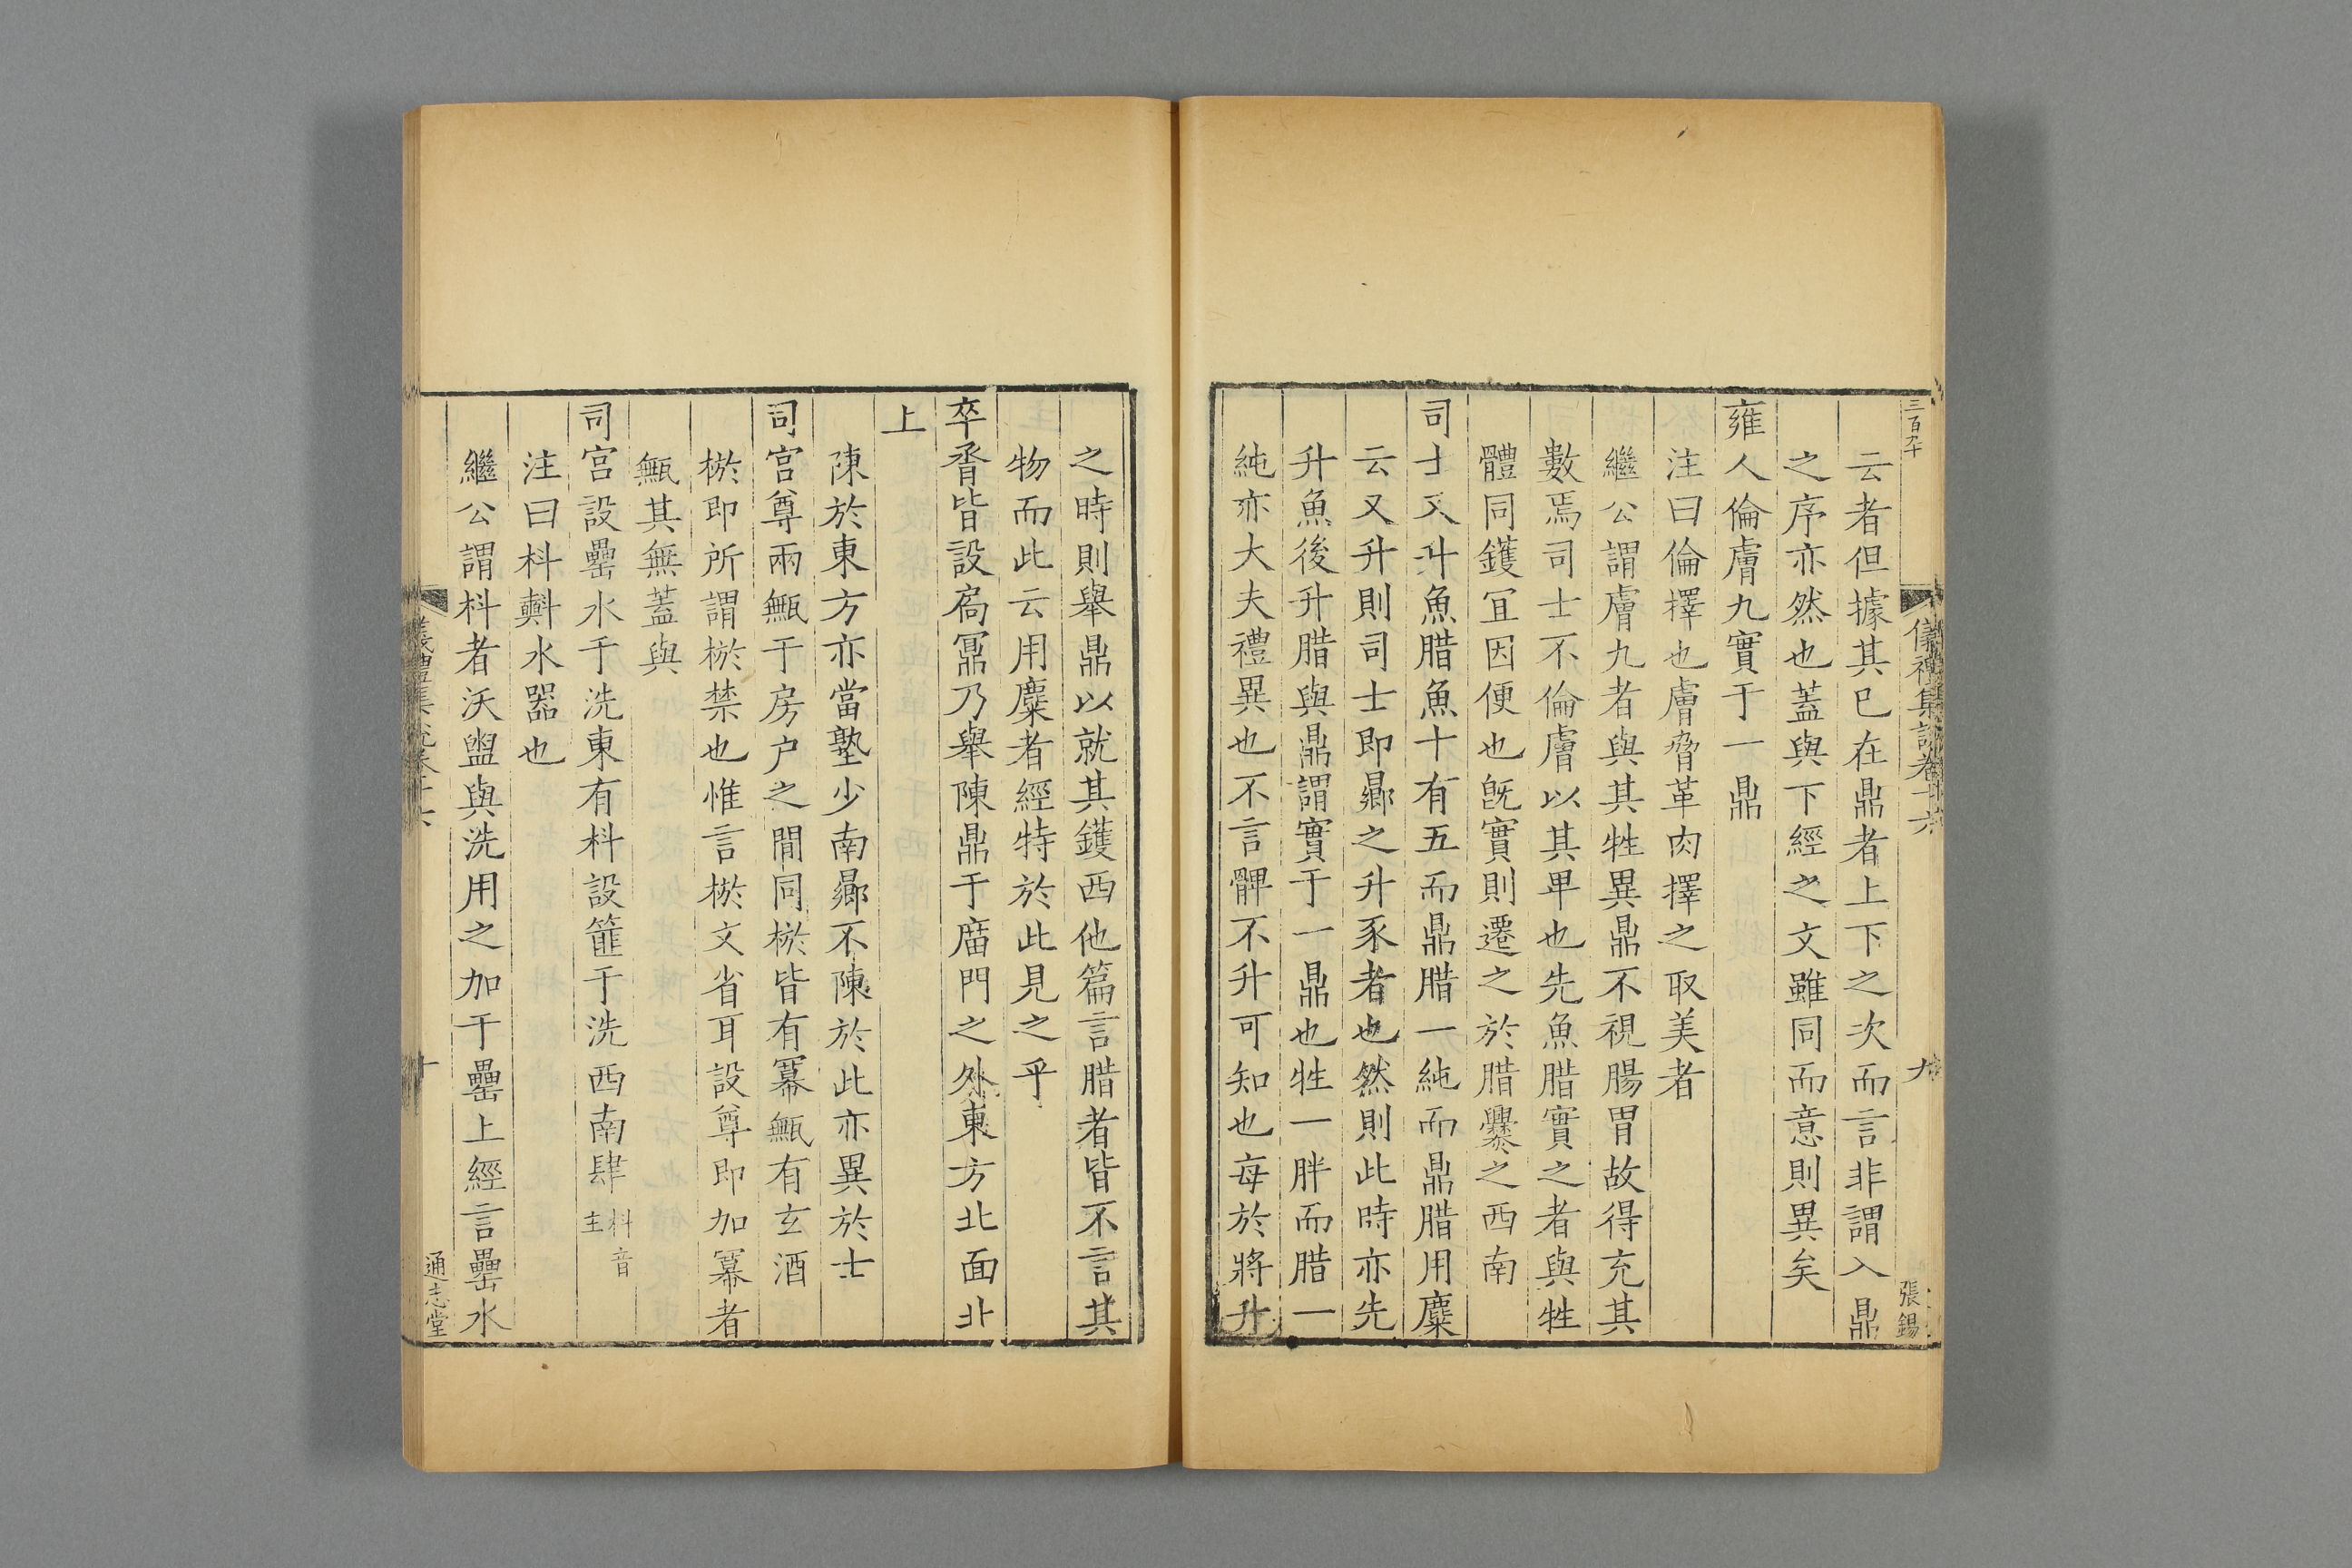 三百九十
儀禮集說卷十六
九
張錫
云者但據其已在鼎者上下之次而言非謂入鼎
之序亦然也蓋與下經之文雖同而意則異矣
雍人倫膚九實于一鼎
注曰倫擇也膚脅革肉擇之取美者
繼公謂膚九者與其牲異鼎不視腸胃故得充其
數焉司士不倫膚以其卑也先魚腊實之者與牲
體同鑊宜因便也旣實則遷之於腊爨之西南
司士又升魚腊魚十有五而鼎腊一純而鼎腊用麋
云又升則司士即曏之升豕者也然則此時亦先
升魚後升腊與鼎謂實于一鼎也牲一胖而腊一
純亦大夫禮異也不言髀不升可知也每於將升
之時則舉鼎以就其鑊西他篇言腊者皆不言其
物而此云用麋者經特於此見之乎
卒脀皆設扃鼏乃舉陳鼎于廟門之外東方北面北
上
陳於東方亦當塾少南曏不陳於此亦異於士
司宫尊兩甒于房户之間同棜皆有冪甒有玄酒
棜即所謂棜禁也惟言棜文省耳設尊即加冪者
甒其無蓋與
司宫設罍水于洗東有枓設篚于洗西南肆 枓音主
注曰枓㪺水器也
繼公謂枓者沃盥與洗用之加于罍上經言罍水
儀禮集說卷十六
十
通志堂